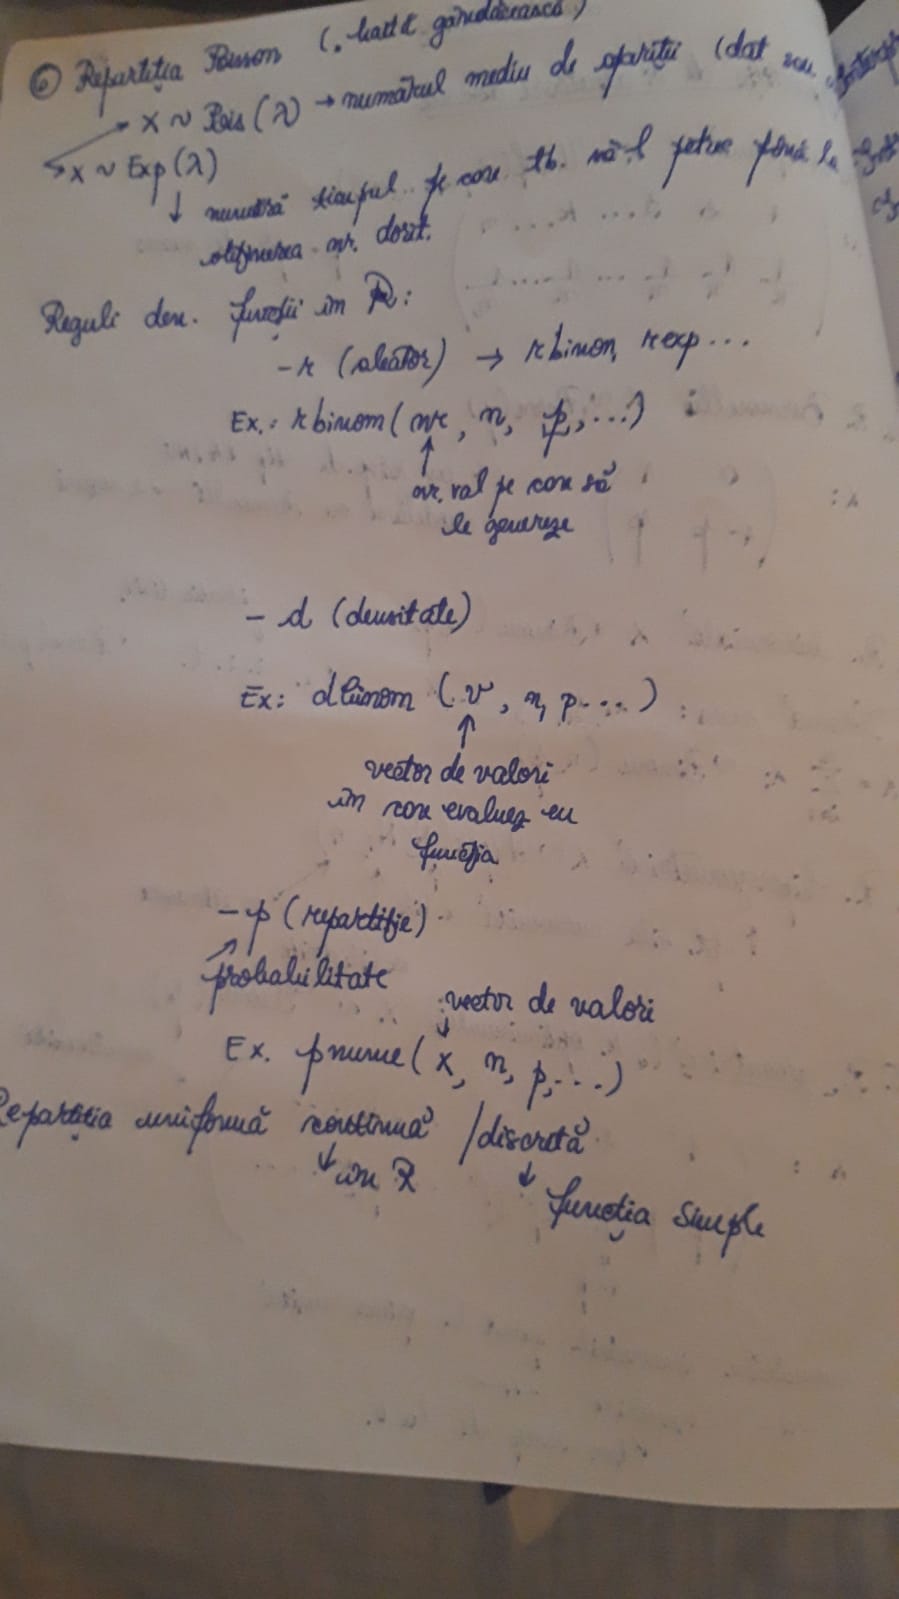 ⑥ Repartiția Poisson (
X ~ Pois(λ) → numărul mediu de apariții (dat
X ~ Exp(λ)
↓ numără timpul pe care tb. să-l petrec până la
obținerea nr. dorit.
Reguli den. funcții în R:
- r (aleator) → rbinom, rexp...
Ex.: rbinom( nr, n, p,...)
↑
nr. val pe care să
le genereze
- d (densitate)
Ex: dbinom (v, n, p...)
↑
vector de valori
în care evaluez eu
funcția
- p (repartiție)
probabilitate
vector de valori
Ex. pnume(x, n, p,...)
Repartiția uniformă continuă /discretă
↓ în R ↓ funcția Simple